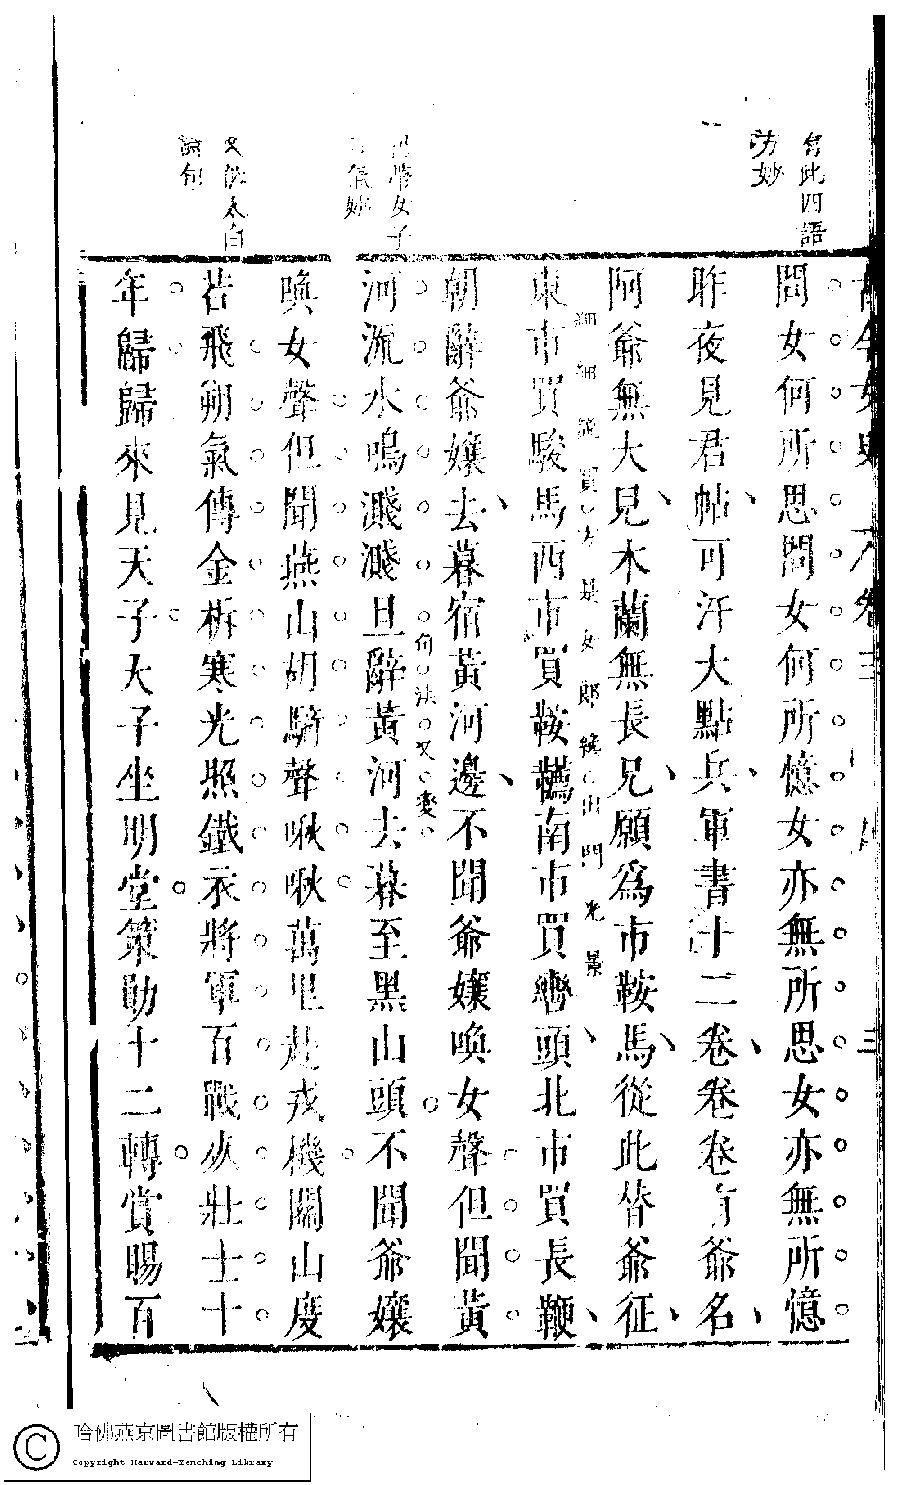 有此四語
方妙
女子
文似太白
問女何所思問女何所憶女亦無所思女亦無所憶
昨夜見君帖可汗大點兵軍書十二卷卷卷有爺名
阿爺無大兒木蘭無長兄願爲市鞍馬從此替爺征
細細說買方是女郎纔出門光景
東市買駿馬西市買鞍韉南市買轡頭北市買長鞭
朝辭爺孃去暮宿黃河邊不聞爺孃喚女聲但聞黃
句法又變
河流水鳴濺濺旦辭黃河去暮至黑山頭不聞爺孃
喚女聲但聞燕山胡騎聲啾啾萬里赴戎機關山度
若飛朔氣傳金柝寒光照鐵衣將軍百戰死壯士十
年歸歸來見天子天子坐明堂策勛十二轉賞賜百
哈佛燕京圖書館版權所有
Copyright Harvard-Yenching Library